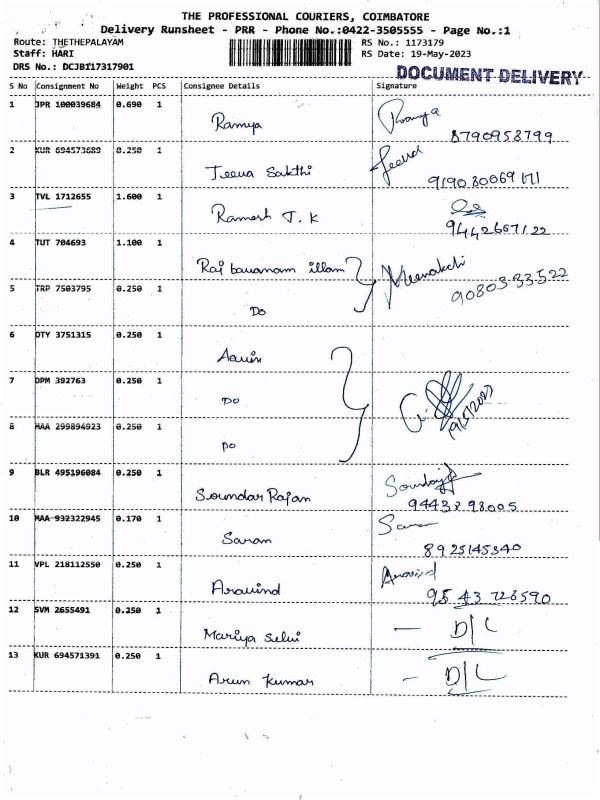 THE PROFESSIONAL COURIERS, COIMBATORE
Delivery Runsheet - PRR - Phone No.:0422-3505555 - Page No.:1
Route: THETHEPALAYAM RS No.: 1173179
Staff: HARI RS Date: 19-May-2023
DRS No.: DCJB117317901
DOCUMENT DELIVERY
S No Consignment No Weight PCS Consignee Details Signature
1 JPR 100039684 0.690 1 Ramya Ramya
8790958799
2 KUR 694573689 0.250 1 Jeeva Sakthi
919080069171
3 TVL 1712655 1.600 1 Ramesh T. K
9442667122
4 TUT 704693 1.100 1 Raj bavanam illam Meenakchi
9080333522
5 TRP 7503795 0.250 1 Do
6 OTY 3751315 0.250 1
7 DPM 392763 0.250 1 Do
19/5/2023
8 MAA 299894923 0.250 1 Do
9 BLR 495196084 0.250 1 Soundar Rajan
94438 98005
10 MAA 932322945 0.170 1 Saran Saran
8925145340
11 VPL 218112550 0.250 1 Aravind Aravind
9543 728590
12 SVM 2655491 0.250 1 Mariya Selvi - D/L
13 KUR 694571391 0.250 1 Arun Kumar - D/L